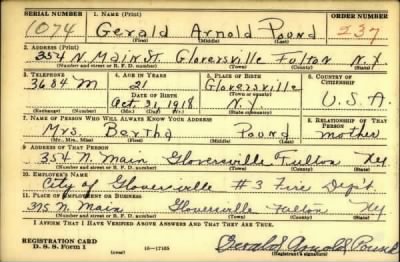 SERIAL NUMBER 1. NAME (Print) ORDER NUMBER
1074 Gerald Arnold Pound 237
(First) (Middle) (Last)
2. ADDRESS (Print)
354 N. Main St. Gloversville Fulton N.Y.
(Number and street or R. F. D. number) (Town) (County) (State)
3. TELEPHONE 4. AGE IN YEARS 5. PLACE OF BIRTH 6. COUNTRY OF CITIZENSHIP
3684 M 21 Gloversville
DATE OF BIRTH (Town or county)
Oct. 31, 1918 N.Y. U.S.A.
(Exchange) (Number) (Mo.) (Day) (Yr.) (State or country)
7. NAME OF PERSON WHO WILL ALWAYS KNOW YOUR ADDRESS 8. RELATIONSHIP OF THAT PERSON
Mrs. Bertha Pound mother
(Mr., Mrs., Miss) (First) (Middle) (Last)
9. ADDRESS OF THAT PERSON
354 N. Main Gloversville Fulton NY
(Number and street or R. F. D. number) (Town) (County) (State)
10. EMPLOYER'S NAME
City of Gloversville #3 Fire Dep't.
11. PLACE OF EMPLOYMENT OR BUSINESS
375 N. Main Gloversville Fulton NY
(Number and street or R. F. D. number) (Town) (County) (State)
I AFFIRM THAT I HAVE VERIFIED ABOVE ANSWERS AND THAT THEY ARE TRUE.
REGISTRATION CARD
D. S. S. Form 1 (over) 16—17105 Gerald Arnold Pound
(Registrant's signature)